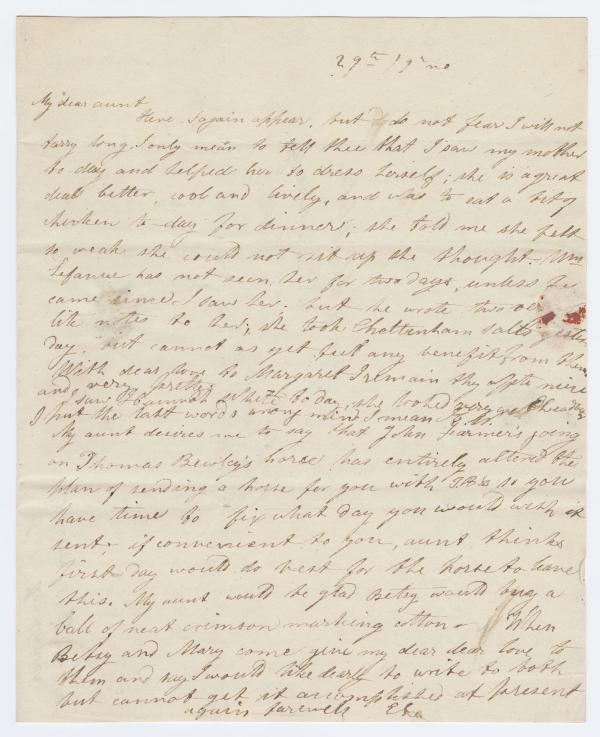 29th / 9th mo
My dear aunt
Here I again appear, but do not fear I will not
tarry long I only mean to tell thee that I saw my mother
to day and helped her to dress herself; she is a great
deal better, cool and lively, and was to eat a bit of
chicken to day for dinner; she told me she felt
so weak she could not sit up she thought. Wm
Lefanue has not seen her for two days, unless he
came since I saw her. but he wrote two
like notes to her; she took Cheltenham salts yester
day but cannot as yet feel any benefit from them
With dear love to Margaret I remain thy affte niece
I saw Hannah White to day, she looked very well
and very pretty
I put the last words wrong mind I mean H.W.
My aunt desires me to say that John Farmer's going
on Thomas Bewley's horse has entirely altered the
plan of sending a horse for you with T.B. so you
have time to fix what day you would wish it
sent, if convenient to you, aunt thinks
first day would do best for the horse to leave
this. My aunt would be glad Betsy would buy a
ball of neat crimson marking cotton - When
Betsy and Mary come give my dear dear love to
them and say I would like dearly to write to both
but cannot get it accomplished at present
again farewell